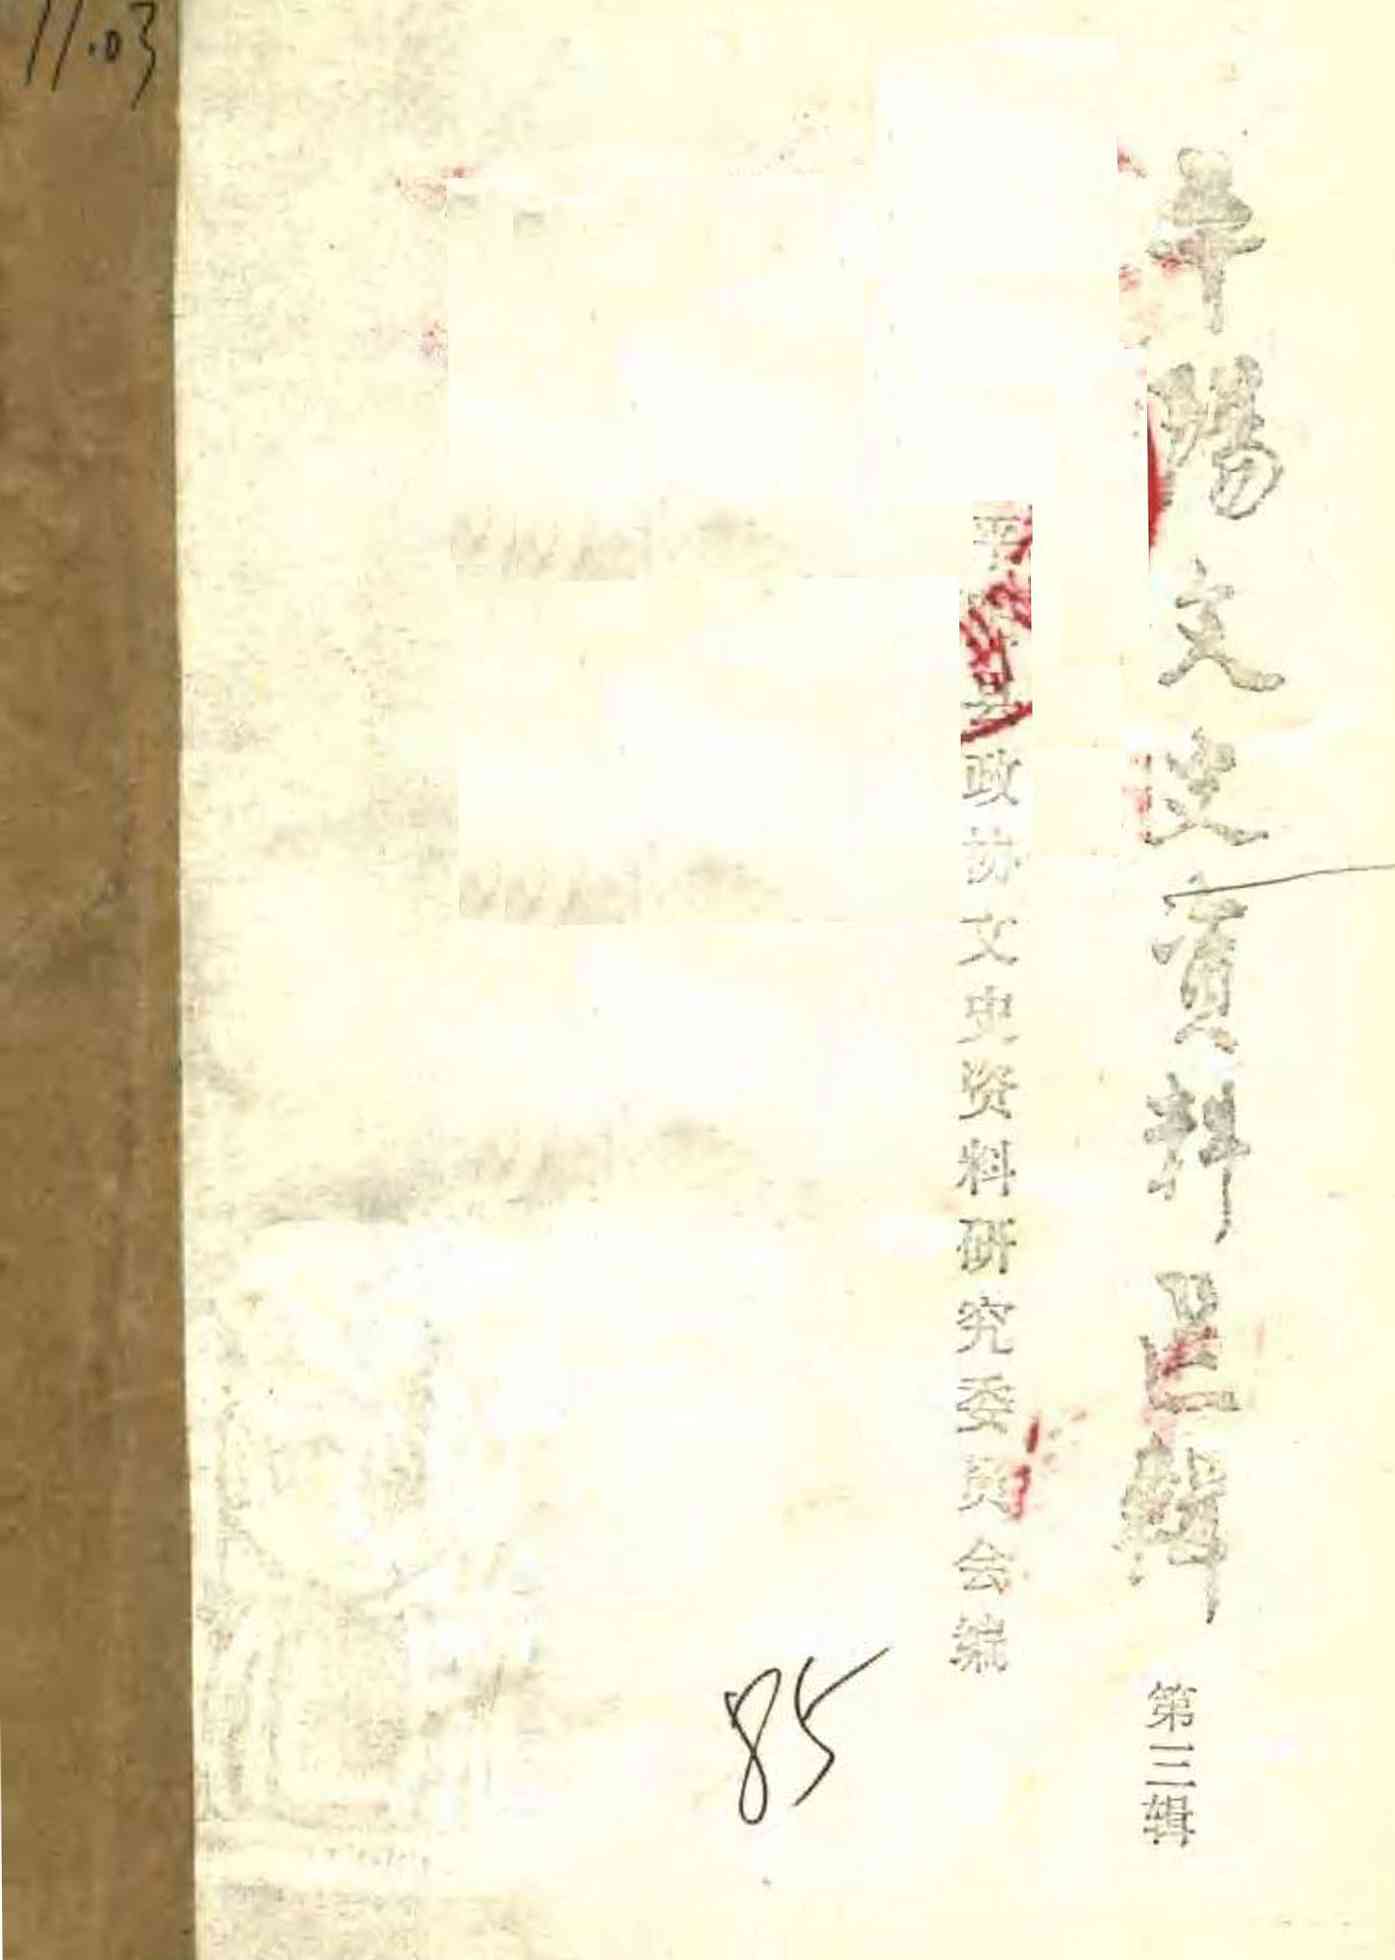 11.03
平陽文史資料選輯
第三辑
平阳县政协文史资料研究委员会编
85